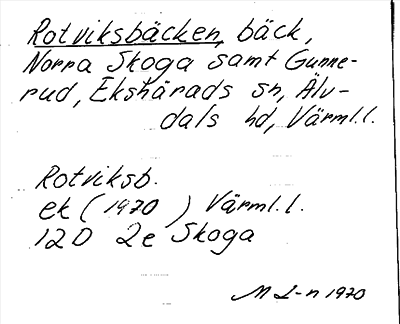 Rotviksbäcken, bäck,
Norra Skoga samt Gunne-
rud, Ekshärads sn, Älv-
dals hd, Värml.l.
Rotviksb.
ek (1970) Värml.l.
12D 2e Skoga
M L-n 1970